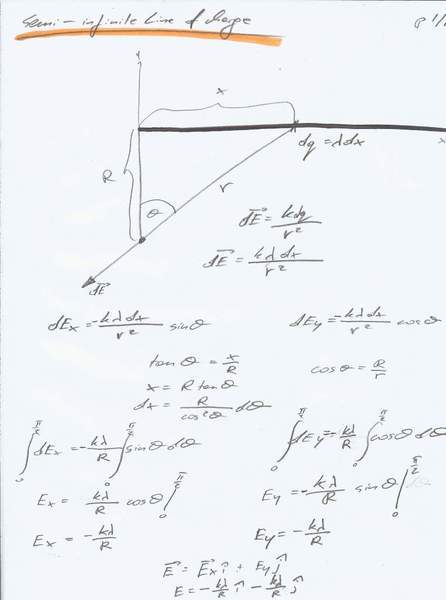 Semi-infinite Line of charge p 1/
x
dq = λdx
x
R
θ
r
dE⃗ = kdq/r²
dE⃗ = kλdx/r²
dE⃗
dEx = -kλdx/r² sinθ dEy = -kλdx/r² cosθ
tanθ = x/R cosθ = R/r
x = R tanθ
dx = R/cos²θ dθ
∫₀^(π/2) dEx = -kλ/R ∫₀^(π/2) sinθ dθ ∫₀^(π/2) dEy = -kλ/R ∫₀^(π/2) cosθ dθ
Ex = kλ/R cosθ |₀^(π/2) Ey = -kλ/R sinθ |₀^(π/2)
Ex = -kλ/R Ey = -kλ/R
E⃗ = E⃗xî + Eyĵ
E = -kλ/R î - kλ/R ĵ